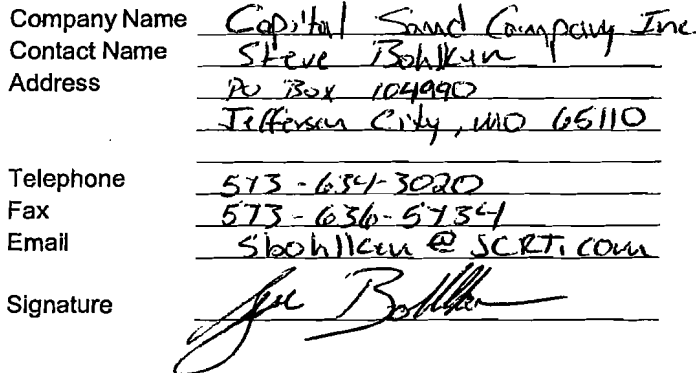 Company Name Capital Sand Company Inc.
Contact Name Steve Bohlken
Address PO Box 104990
Jefferson City, MO 65110
Telephone 573-634-3020
Fax 573-636-5734
Email Sbohlken @ JCRT.com
Signature Steve Bohlken